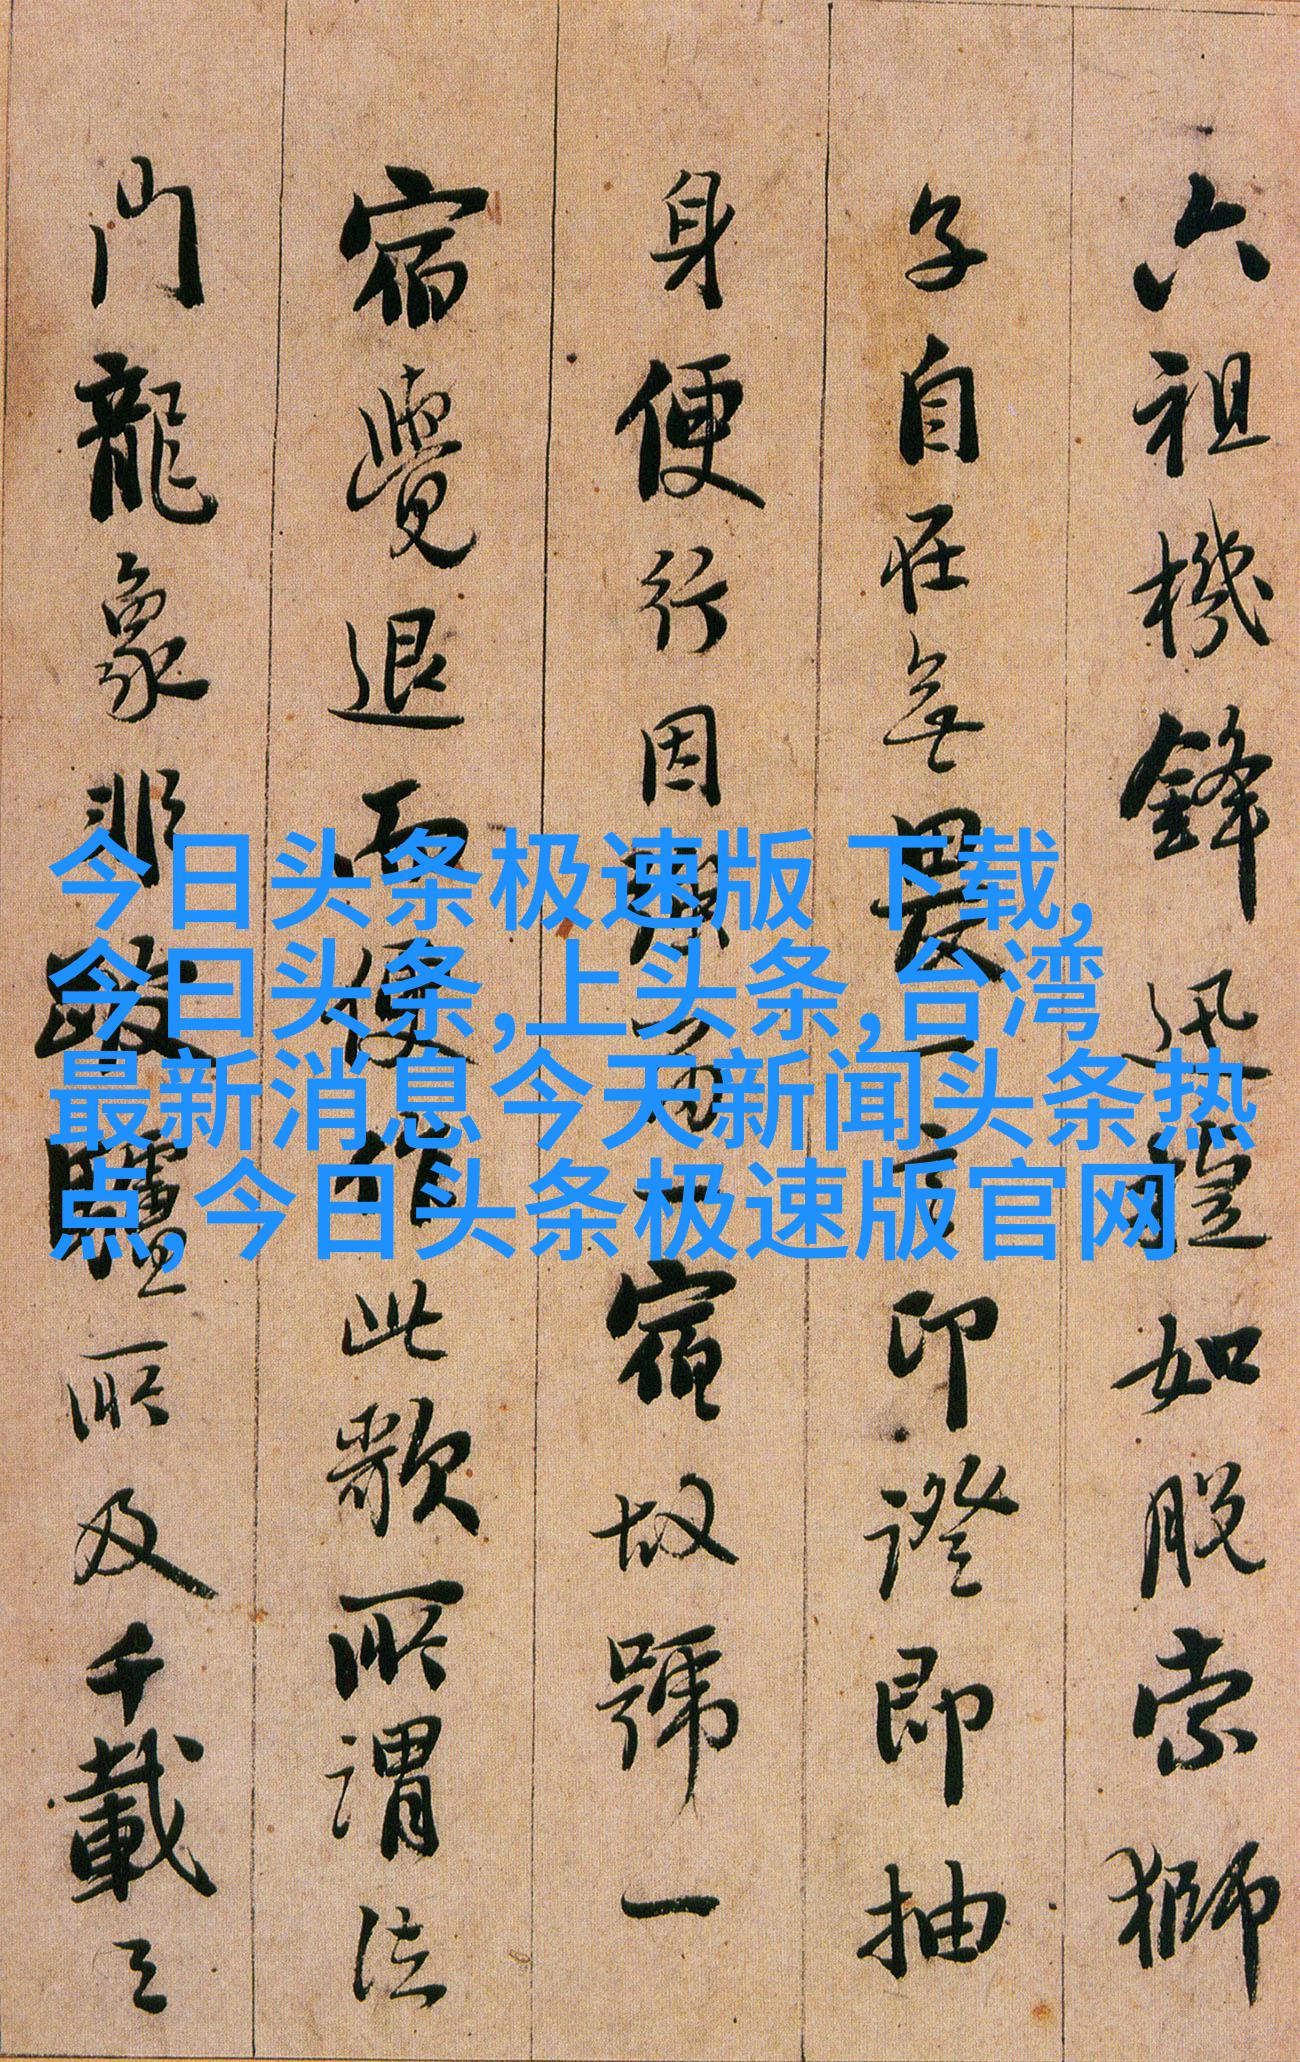 六祖機鋒迅如脫索獅
子自在無畏一言印證即抽
身便行因一宿故號一
宿覺退而便作此歌所謂法
門龍象非驢所及千載之
今日头条极速版 下载,
今曰头条,上头条,台湾
最新消息今天新闻头条热
点,今日头条极速版官网